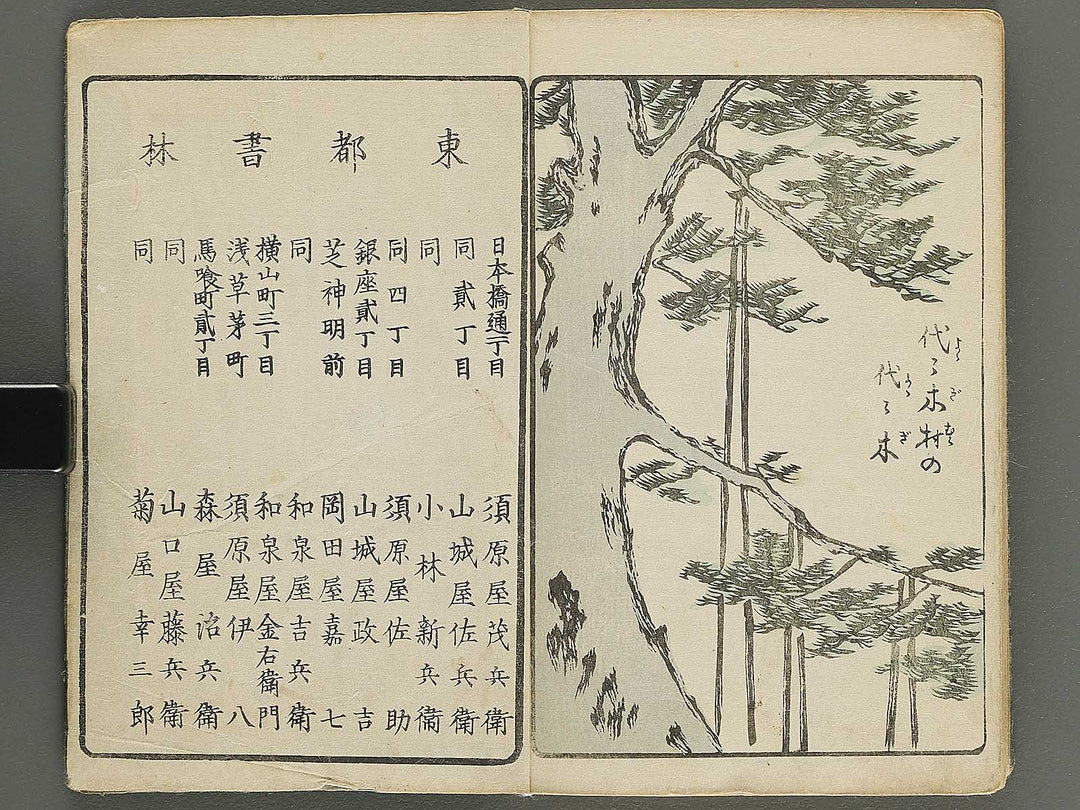 代々木村の
よゝぎむら
代々木
よゝぎ
東都書林
日本橋通一丁目 須原屋茂兵衛
同 貳丁目 山城屋佐兵衛
同 小林新兵衛
同 四丁目 須原屋佐助
銀座貳丁目 山城屋政吉
芝神明前 岡田屋嘉七
同 和泉屋吉兵衛
横山町三丁目 和泉屋金右衛門
浅草茅町 須原屋伊八
馬喰町貳丁目 森屋治兵衛
同 山口屋藤兵衛
同 菊屋幸三郎